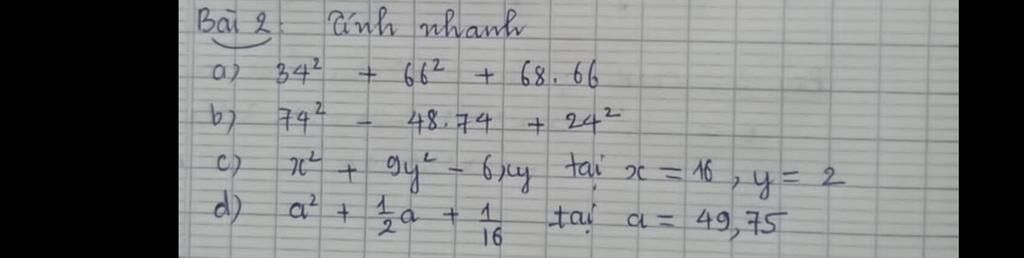 Bài 2: Tính nhanh
a) 34² + 66² + 68.66
b) 74² - 48.74 + 24²
c) x² + 9y² - 6xy tại x = 16, y = 2
d) a² + 1/2 a + 1/16 tại a = 49,75